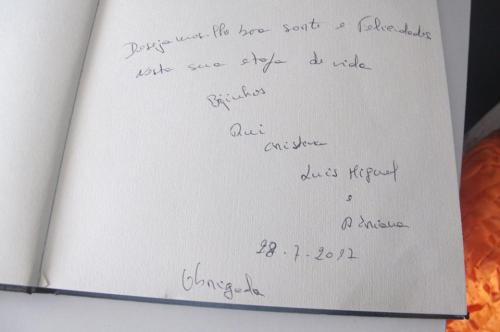 Desejamos-lhe boa sorte e Felicidades
nesta sua etapa de vida
Beijinhos
Rui
Cristina
Luis Miguel
e
Adriana
28.7.2012
Obrigada